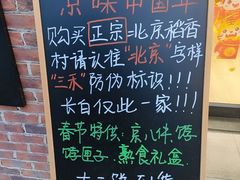 京味中国年
购买正宗北京稻香
村请认准"北京"字样
"三禾"防伪标识!!!
长白仅此一家!!!
春节特供:京八件 饽
饽匣子.熟食礼盒